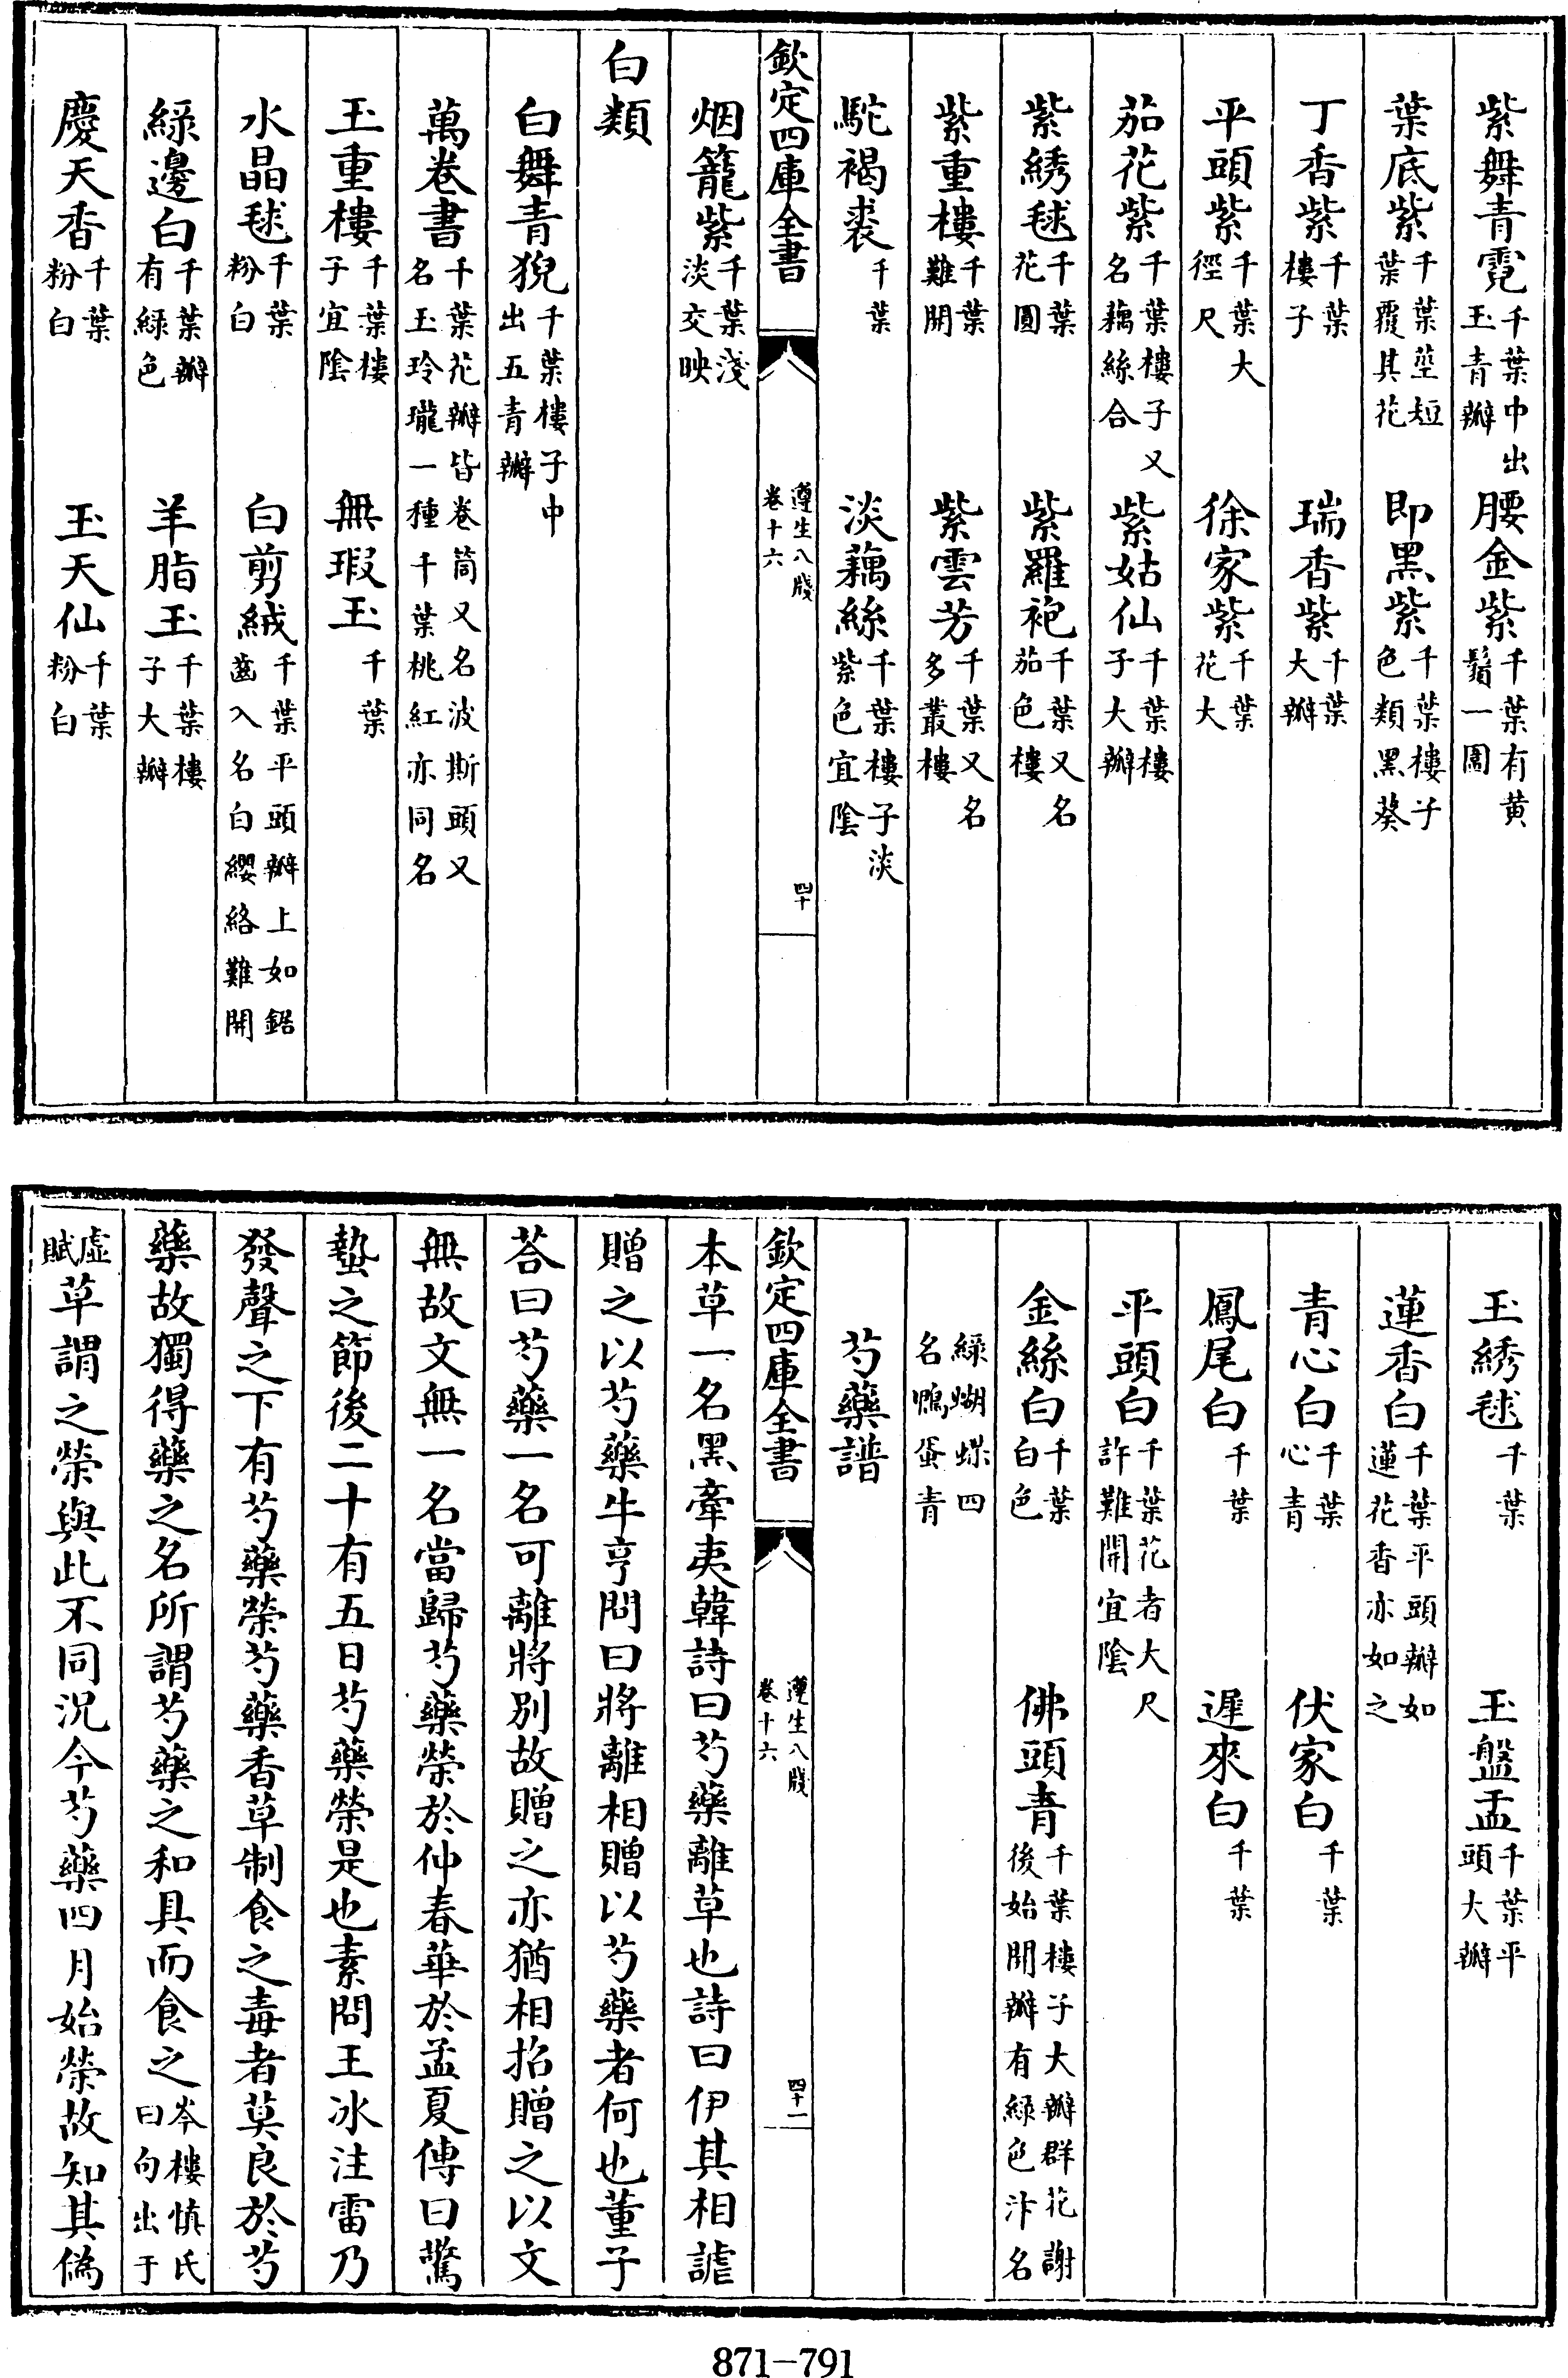 紫舞青霓千葉中出玉青瓣　腰金紫千葉有黄鬚一圍
葉底紫千葉莖短葉覆其花　即黑紫千葉樓子色類黑葵
丁香紫千葉樓子　瑞香紫千葉大瓣
平頭紫千葉大徑尺　徐家紫千葉花大
茄花紫千葉樓子又名藕絲合　紫姑仙千葉樓子大瓣
紫綉毬千葉花圓　紫羅袍千葉又名茄色樓
紫重樓千葉難開　紫雲芳千葉又名多叢樓
駝褐裘千葉　淡藕絲千葉樓子淡紫色宜陰
欽定四庫全書　遵生八牋卷十六　四十
烟籠紫千葉淺淡交映
白類
白舞青猊千葉樓子中出五青瓣
萬卷書千葉花瓣皆卷筒又名波斯頭又名玉玲瓏一種千葉桃紅亦同名
玉重樓千葉樓子宜陰　無瑕玉千葉
水晶毬千葉粉白　白剪絨千葉平頭瓣上如鋸齒入名白纓絡難開
綠邊白千葉瓣有綠色　羊脂玉千葉樓子大瓣
慶天香千葉粉白　玉天仙千葉粉白
玉綉毬千葉　玉盤盂千葉平頭大瓣
蓮香白千葉平頭瓣如蓮花香亦如之
青心白千葉心青　伏家白千葉
鳳尾白千葉　遲來白千葉
平頭白千葉花者大尺許難開宜陰
金絲白千葉白色　佛頭青千葉樓子大瓣群花謝後始開瓣有綠色汴名
綠蝴蝶四名鴨蛋青
芍藥譜
欽定四庫全書　遵生八牋卷十六　四十一
本草一名黑牽夷韓詩曰芍藥離草也詩曰伊其相謔
贈之以芍藥牛亨問曰將離相贈以芍藥者何也董子
荅曰芍藥一名可離將別故贈之亦猶相招贈之以文
無故文無一名當歸芍藥榮於仲春華於孟夏傳曰驚
蟄之節後二十有五日芍藥榮是也素問王冰注雷乃
發聲之下有芍藥榮芍藥香草制食之毒者莫良於芍
藥故獨得藥之名所謂芍藥之和具而食之岑樓慎氏曰句出于
虛賦草謂之榮與此不同況今芍藥四月始榮故知其僞
871-791